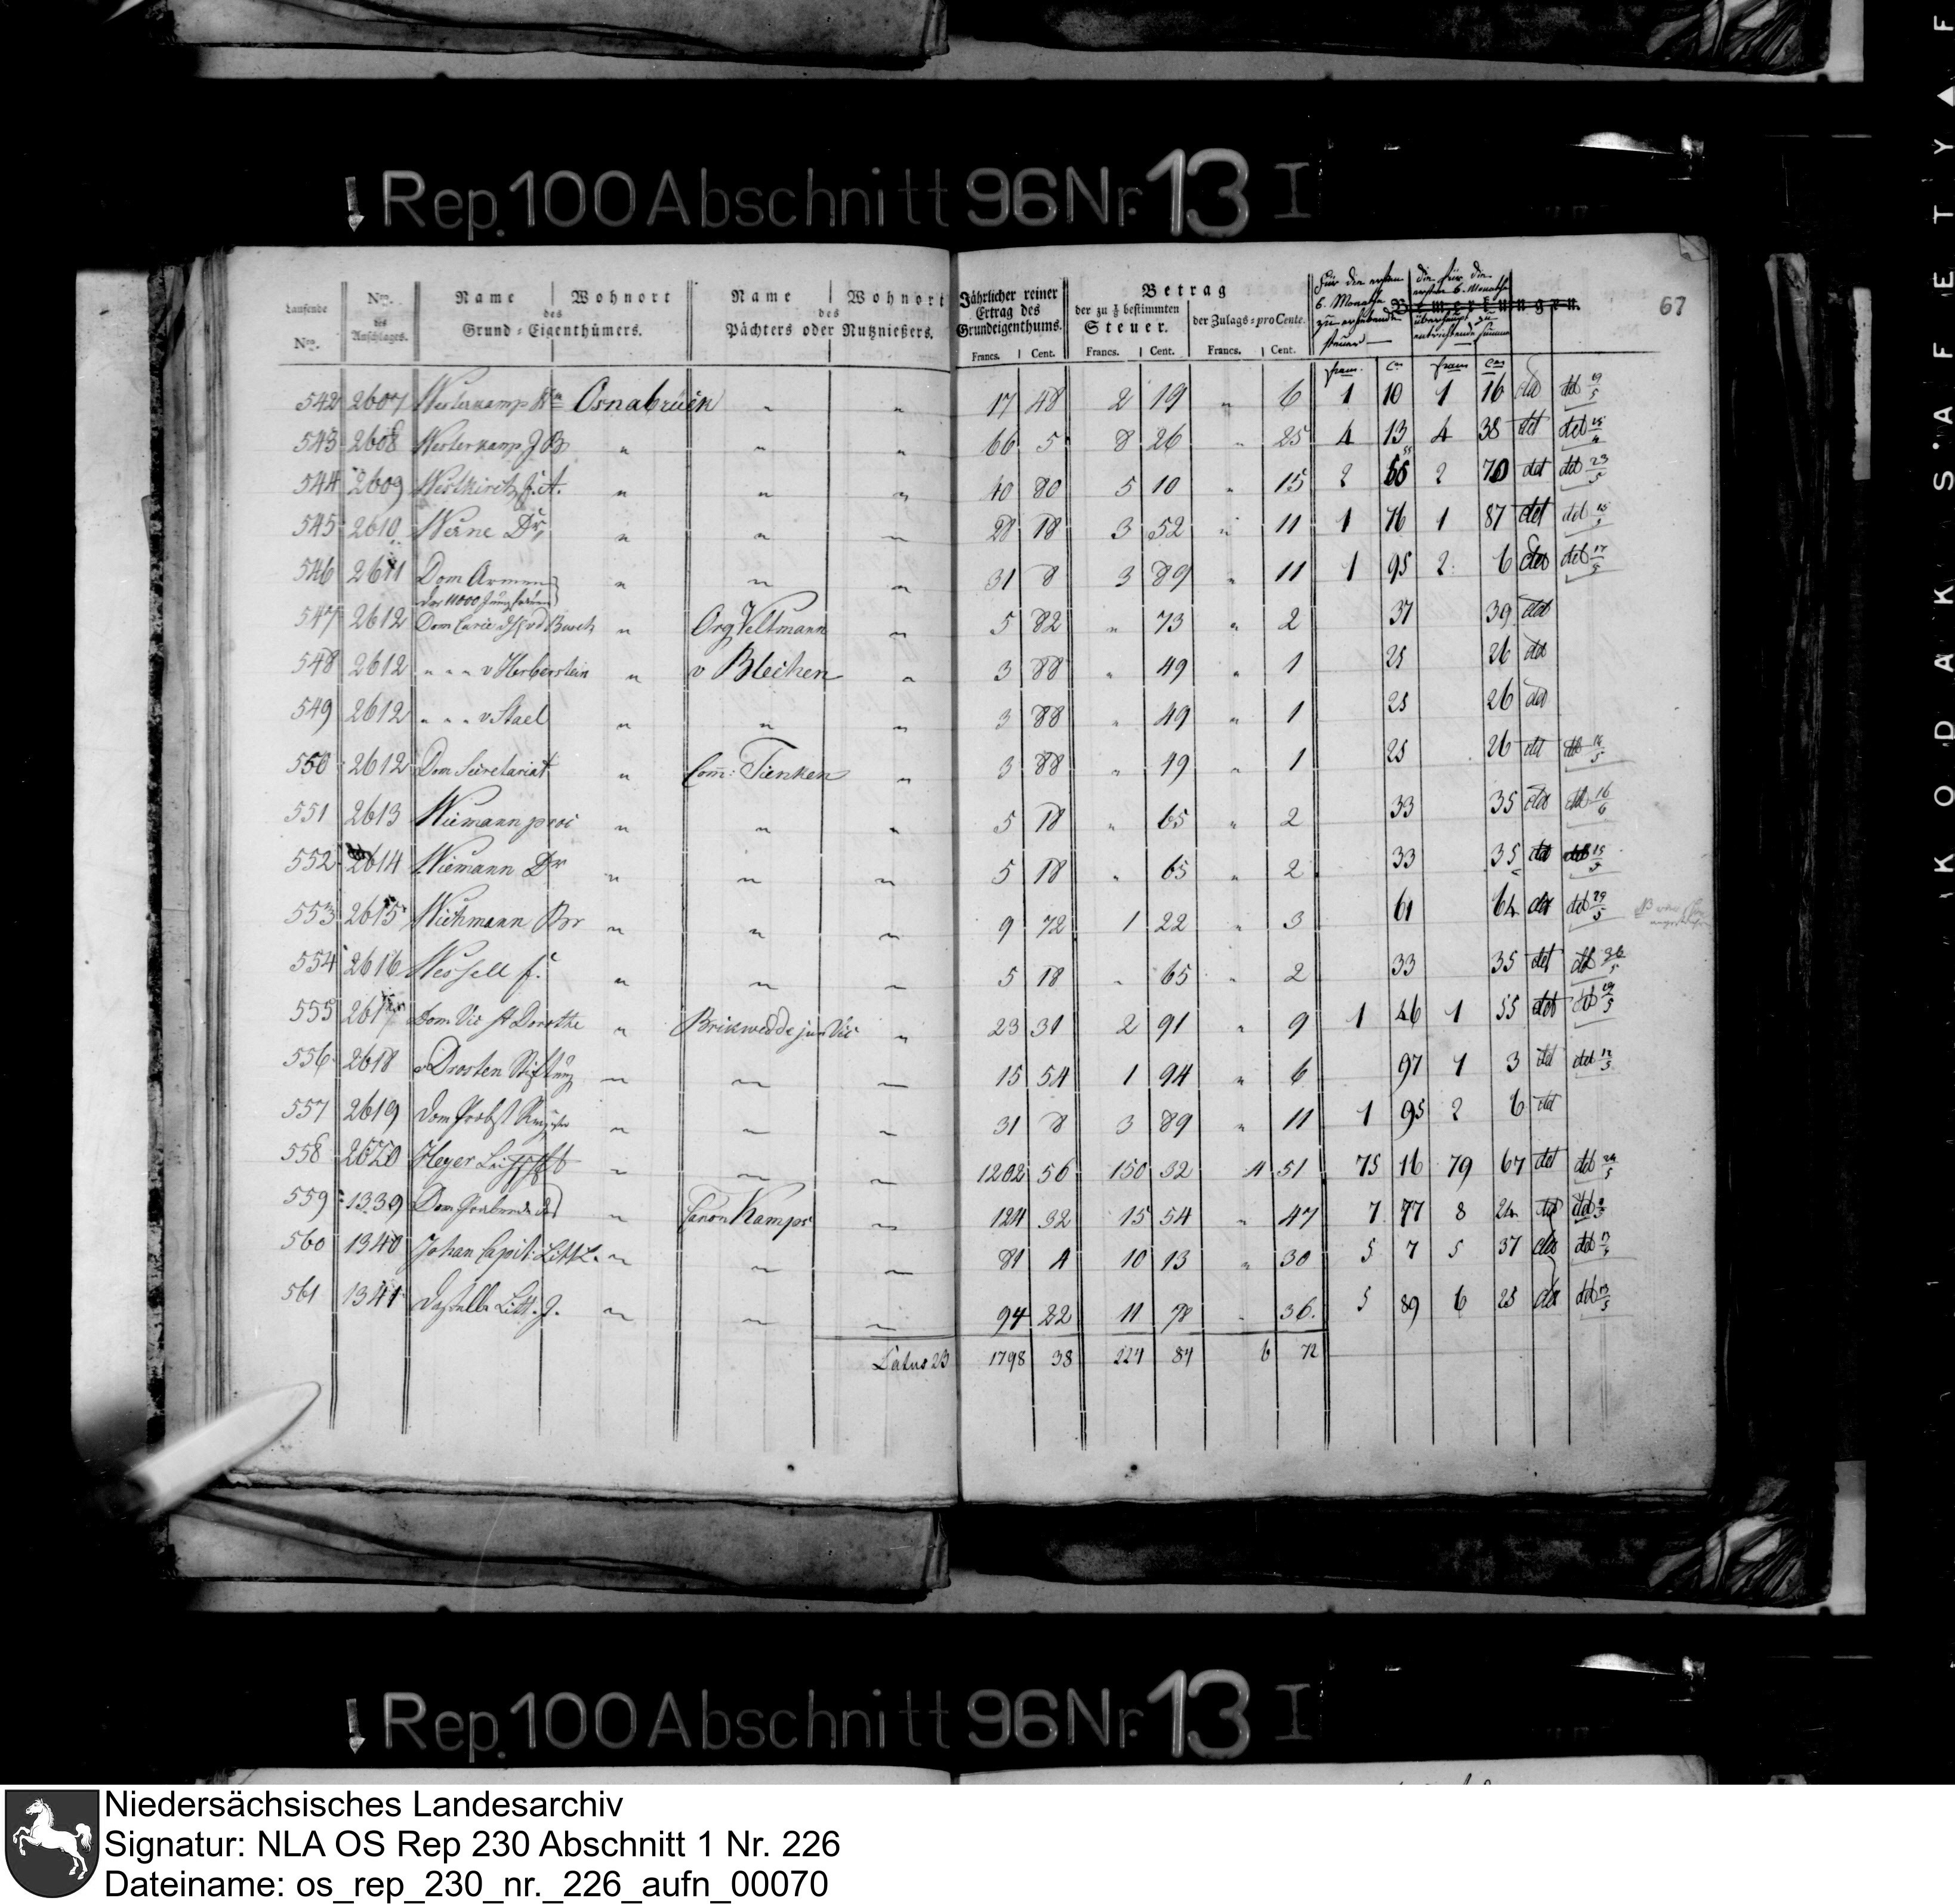 Rep. 100 Abschnitt 96 Nr. 13 I
67
Laufende Nrn. Nrn. des Anschlages. Name Wohnort des Grund-Eigenthümers. Name Wohnort des Pächters oder Nutznießers. Jährlicher reiner Ertrag des Grundeigenthums. Betrag der zu ⅛ bestimmten Steuer. der Zulags-pro Cente. Bemerkungen.
Für die ersten 6. Monathe zu erhebende Steuer
die für die ersten 6. Monathe überhaupt zu entrichtende Summe
Francs. Cent. Francs. Cent. Francs. Cent. fran. Cen fran Cen
542 2607 Westerkamp Osnabrück " " 17 48 2 19 " 6 1 10 1 16 ddt 19/5
543 2608 Westerkamp J B " " " 66 5 8 26 " 25 4 13 4 38 ddt ddt
544 2609 " " " 40 80 5 10 " 15 2 55 2 70 ddt ddt 23/5
545 2610 Werne Dr " " " 28 18 3 52 " 11 1 76 1 87 ddt ddt
546 2611 Dom " " " 31 8 3 89 " 11 1 95 2 6 ddt ddt 17/5
der 11000 Jungfrauen
547 2612 Dom " Org Veltmann " 5 82 " 73 " 2 37 39 ddt
548 2612 " " " v Herberstein " v Blechen " 3 88 " 49 " 1 25 26 ddt
549 2612 " " " v Stael " " " 3 88 " 49 " 1 25 26 ddt
550 2612 Dom Secretariat " Com: Tienken " 3 88 " 49 " 1 25 26 ddt ddt
551 2613 Wiemann proc " " " 5 18 " 65 " 2 33 35 ddt ddt 16/6
552 2614 Wiemann Dr " " " 5 18 " 65 " 2 33 35 ddt ddt 15/5
553 2615 Wichmann " " " 9 72 1 22 " 3 61 64 ddt ddt 29/5
554 2616 Wessell " " " 5 18 " 65 " 2 33 35 ddt ddt
555 2617 Dom Vic St Dorothe " Brickwedde jun Vic " 23 31 2 91 " 9 1 46 1 55 ddt ddt 29/5
556 2618 v Drosten Stiftung " " " 15 54 1 94 " 6 97 1 3 ddt ddt
557 2619 Dom Probst " " " 31 8 3 89 " 11 1 95 2 6 ddt
558 2620 Heyer " " " 1202 56 150 32 4 51 75 16 79 67 ddt ddt
559 1339 Dom " Canon Kamps " 124 32 15 54 " 47 7 77 8 24 ddt ddt
560 1340 Johan Capit: Litt. " " " 81 4 10 13 " 30 5 7 5 37 ddt ddt
561 1341 Dasselbe Litt. J. " " " 94 22 11 78 " 36. 5 89 6 25 ddt ddt
Latus 23 1798 38 224 84 6 72
Rep. 100 Abschnitt 96 Nr. 13 I
KODAK SAFETY F
Niedersächsisches Landesarchiv
Signatur: NLA OS Rep 230 Abschnitt 1 Nr. 226
Dateiname: os_rep_230_nr._226_aufn_00070